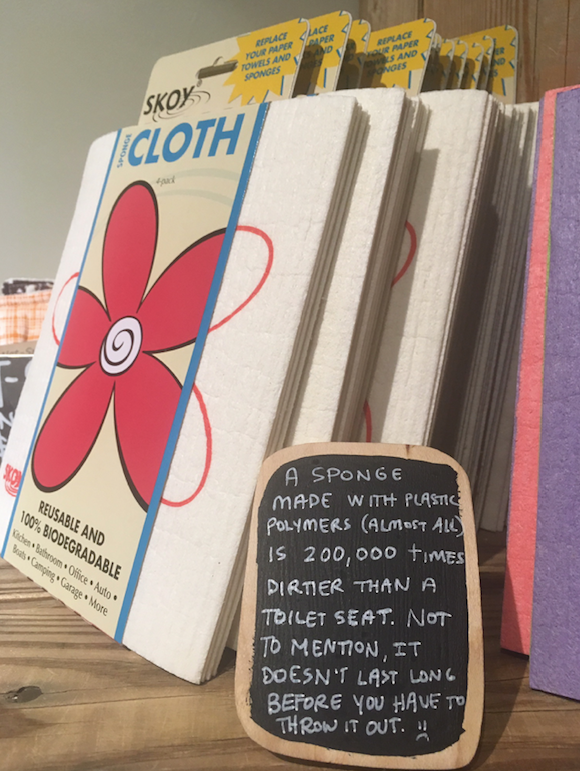 REPLACE
YOUR PAPER
TOWELS AND
SPONGES
REPLACE
YOUR PAPER
TOWELS AND
SPONGES
SKOY
SPONGE
CLOTH
4-pack
SKOY
REUSABLE AND
100% BIODEGRADABLE
Kitchen • Bathroom • Office • Auto •
Boats • Camping • Garage • More
A SPONGE
MADE WITH PLASTIC
POLYMERS (ALMOST ALL)
IS 200,000 TIMES
DIRTIER THAN A
TOILET SEAT. NOT
TO MENTION, IT
DOESN'T LAST LONG
BEFORE YOU HAVE TO
THROW IT OUT.